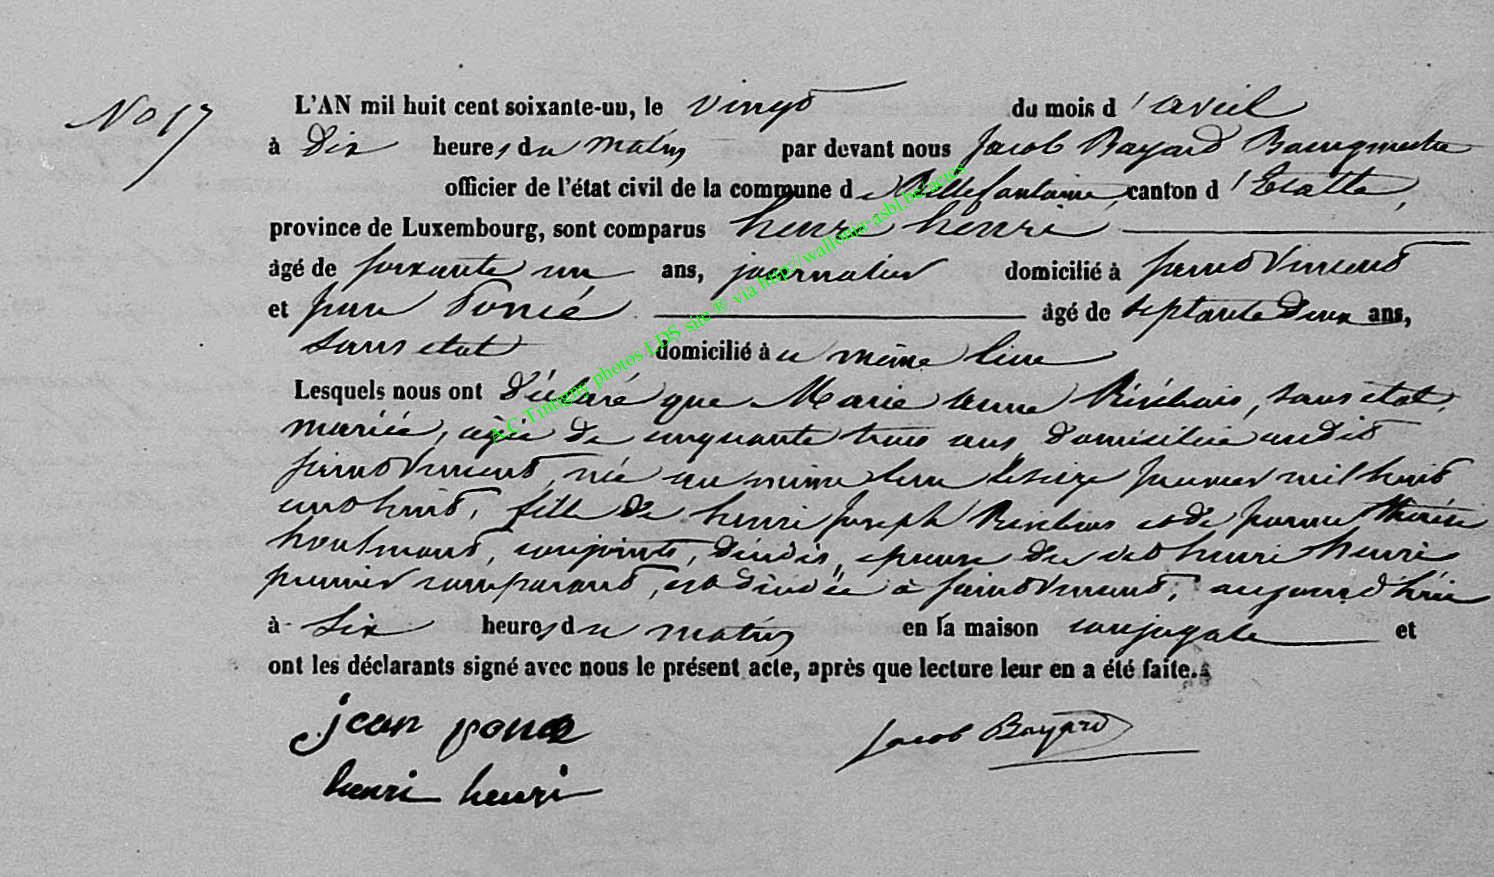 No 17
L'AN mil huit cent soixante-un, le vingt du mois d'avril
à dix heures du matin par devant nous Jacob Bayard Bourgmestre
officier de l'état civil de la commune de Bellefontaine, canton d'Etalle,
province de Luxembourg, sont comparus henri henri
âgé de soixante un ans, journalier domicilié à saint Vincent
et jean Poncé âgé de septante deux ans,
sans etat domicilié à u même lieu
Lesquels nous ont déclaré que Marie anne sans etat,
mariée, agée de cinquante trois ans domiciliée audit
saint Vincent, née au même lieu le seize janvier mil huit
cent huit, fille de henri joseph et de jeanne thérèse
conjoints, épouse du dit henri henri
premier comparant, est à saint Vincent, aujourd'hui
à six heures du matin en la maison conjugale et
ont les déclarants signé avec nous le présent acte, après que lecture leur en a été faite.
jean ponce Jacob Bayard
henri henri
A.C Tintigny photos LDS site ® via http://wallonia-asbl.be/actes